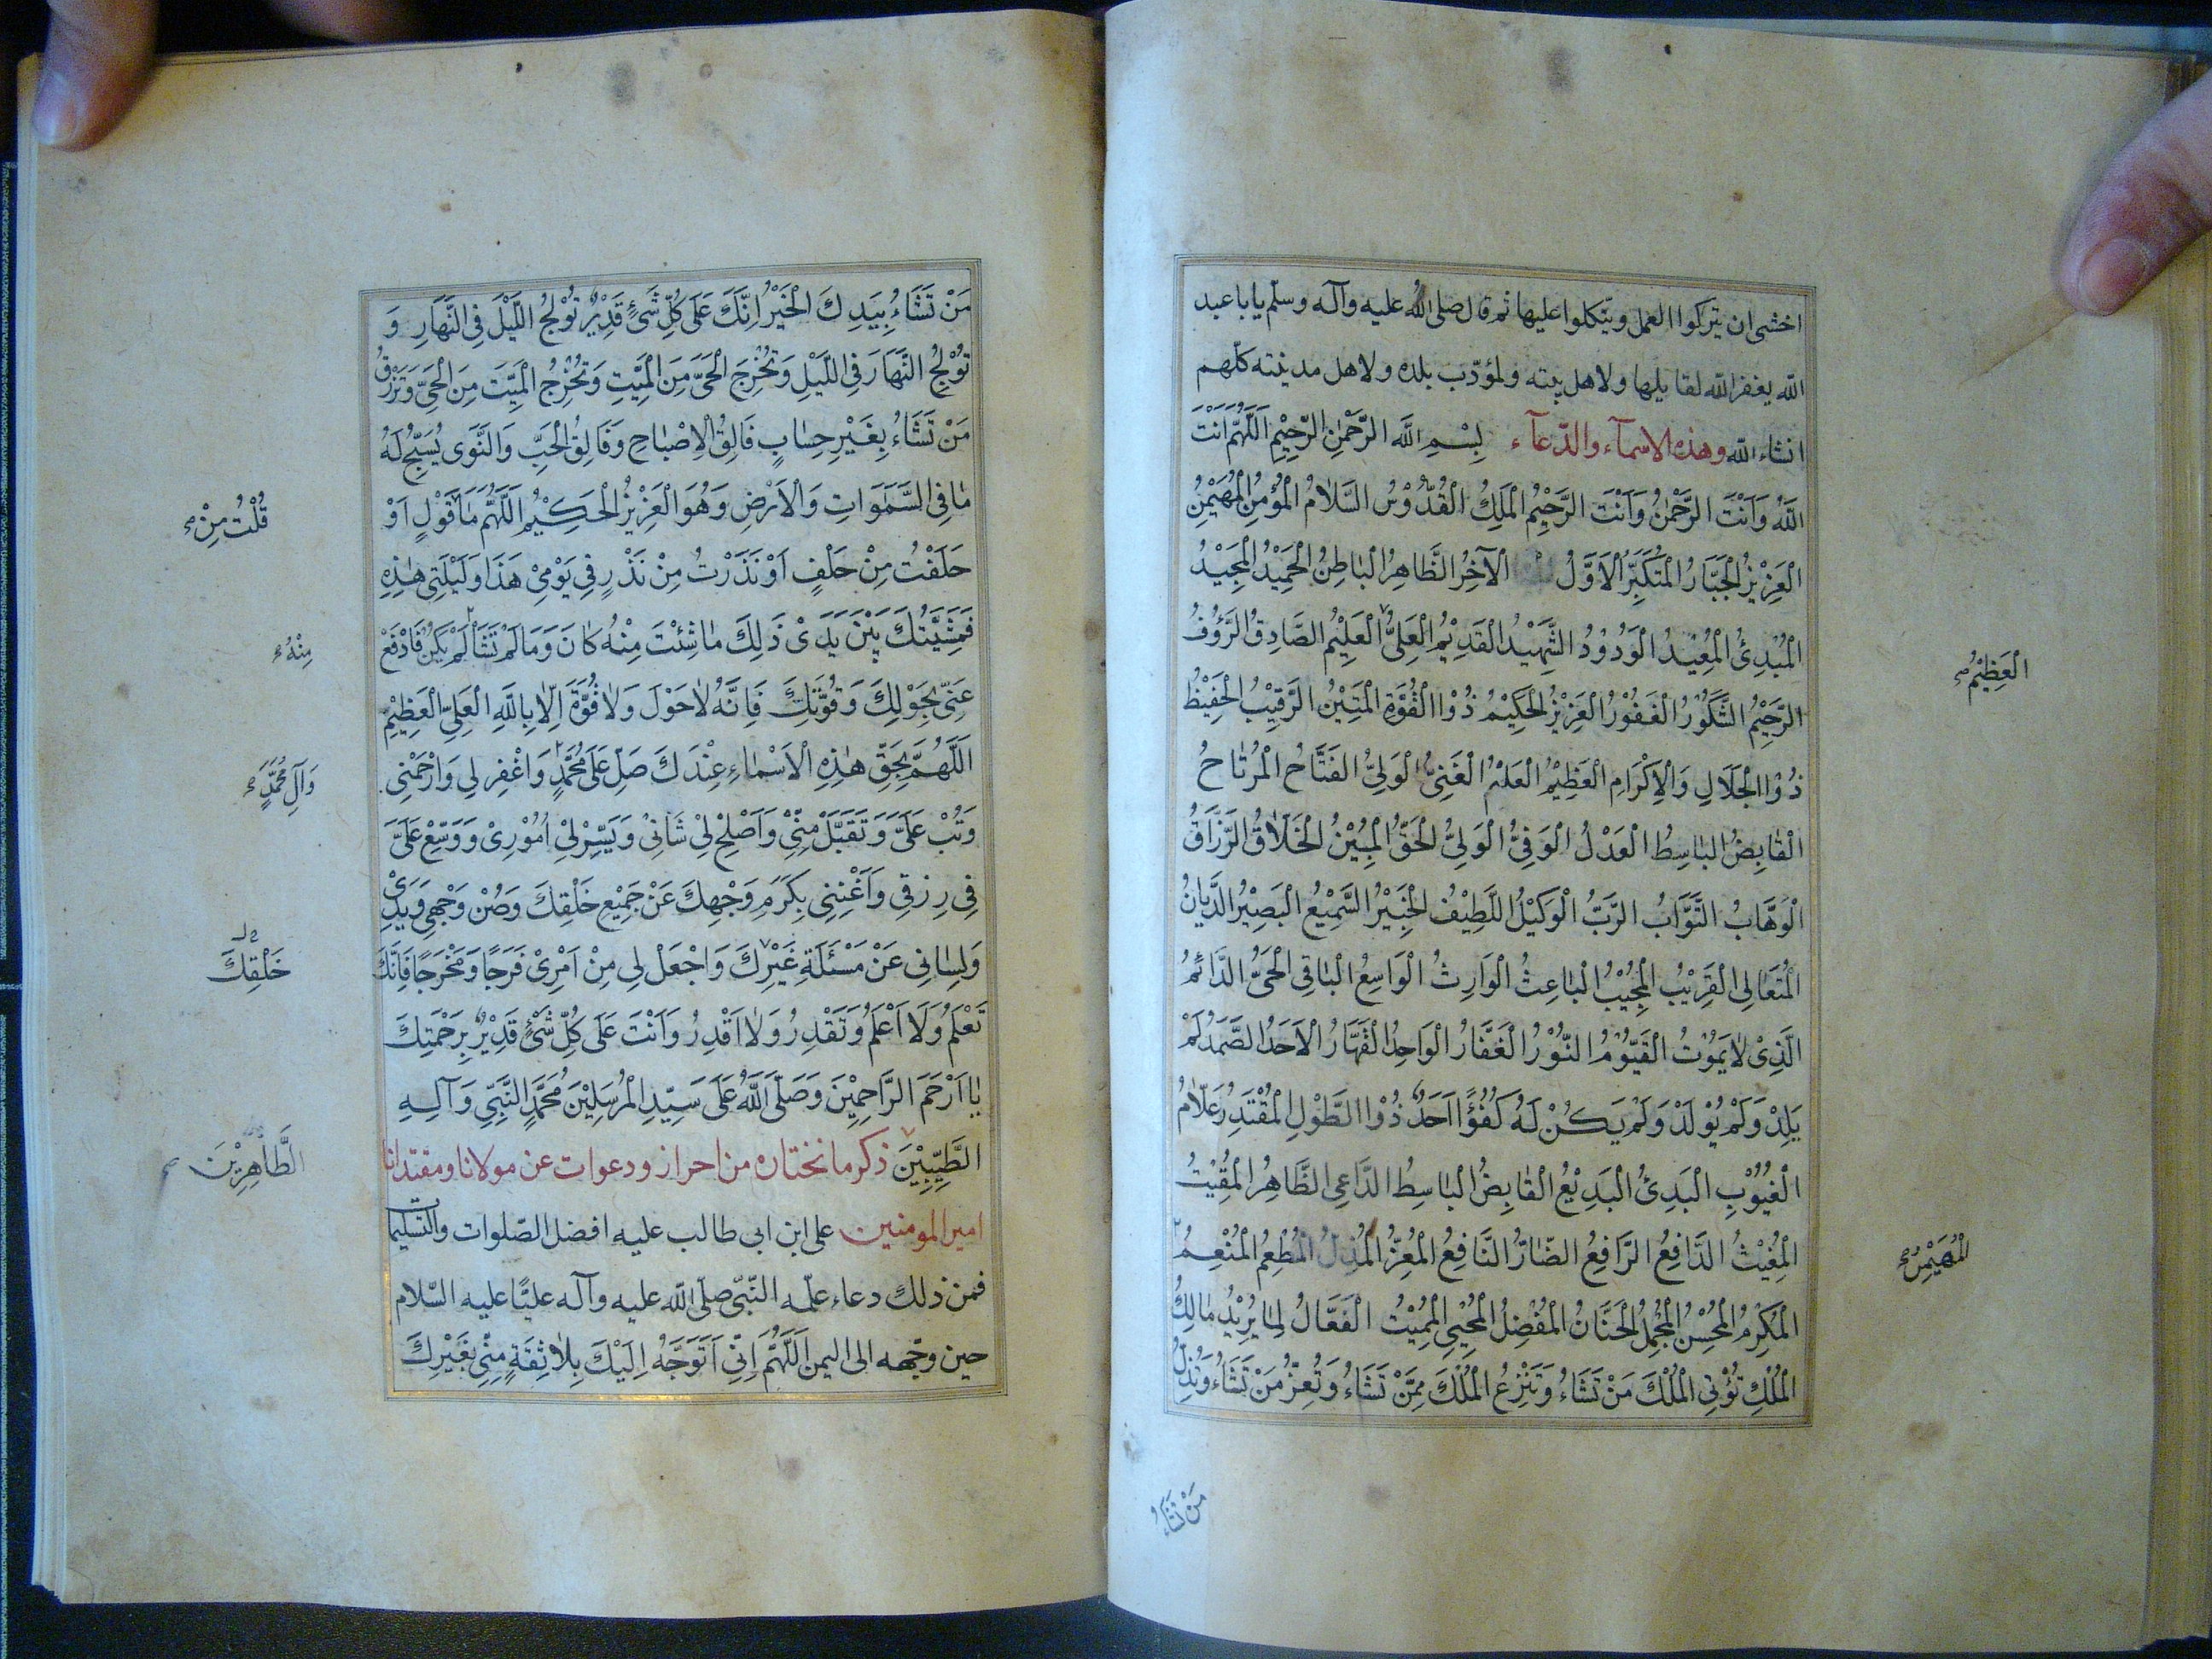 اخشی ان یترکوا العمل ویتکلوا علیها ثم قال صلی الله علیه وآله وسلم یا با عبد
الله یغفر الله لقایلها ولاهل بیته ولمؤدّب بلده ولاهل مدینته کلّهم
انشاء الله وهذه الاسمآء والدّعآء بِسْمِ اللهِ الرَّحْمٰنِ الرَّحِيْمِ اَللّٰهُمَّ اَنْتَ
اللهُ وَاَنْتَ الرَّحْمٰنُ وَاَنْتَ الرَّحِيْمُ الْمَلِكُ الْقُدُّوْسُ السَّلَامُ الْمُؤْمِنُ الْمُهَيْمِنُ
الْعَزِيْزُ الْجَبَّارُ الْمُتَكَبِّرُ الْاَوَّلُ الْآخِرُ الظَّاهِرُ الْبَاطِنُ الْحَمِيْدُ الْمَجِيْدُ
الْمُبْدِئُ الْمُعِيْدُ الْوَدُوْدُ الشَّهِيْدُ الْقَدِيْمُ الْعَلِيُّ الْعَلِيْمُ الصَّادِقُ الرَّؤُفُ
الْعَظِيْمُ
الرَّحِيْمُ الشَّكُوْرُ الْغَفُوْرُ الْعَزِيْزُ الْحَكِيْمُ ذُوْا الْقُوَّةِ الْمَتِيْنُ الرَّقِيْبُ الْحَفِيْظُ
ذُوْا الْجَلَالِ وَالْاِكْرَامِ الْعَظِيْمُ الْعَلِيْمُ الْغَنِيُّ الْوَلِيُّ الْفَتَّاحُ الْمُرْتَاحُ
الْقَابِضُ الْبَاسِطُ الْعَدْلُ الْوَفِيُّ الْوَلِيُّ الْحَقُّ الْمُبِيْنُ الْخَلَّاقُ الرَّزَّاقُ
الْوَهَّابُ التَّوَّابُ الرَّبُّ الْوَكِيْلُ اللَّطِيْفُ الْخَبِيْرُ السَّمِيْعُ الْبَصِيْرُ الدَّيَّانُ
الْمُتَعَالِي الْقَرِيْبُ الْمُجِيْبُ الْبَاعِثُ الْوَارِثُ الْوَاسِعُ الْبَاقِي الْحَيُّ الدَّائِمُ
الَّذِيْ لَا يَمُوْتُ الْقَيُّوْمُ النُّوْرُ الْغَفَّارُ الْوَاحِدُ الْقَهَّارُ الْاَحَدُ الصَّمَدُ لَمْ
يَلِدْ وَلَمْ يُوْلَدْ وَلَمْ يَكُنْ لَهُ كُفُوًا اَحَدٌ ذُوْا الطَّوْلِ الْمُقْتَدِرُ عَلَّامُ
الْغُيُوْبِ الْبَدِئُ الْبَدِيْعُ الْقَابِضُ الْبَاسِطُ الدَّاعِي الظَّاهِرُ الْمُقِيْتُ
الْمُغِيْثُ الدَّافِعُ الرَّافِعُ الضَّارُّ النَّافِعُ الْمُعِزُّ الْمُذِلُّ الْمُطْعِمُ الْمُنْعِمُ
الْمُهَيْمِنُ
الْمُكْرِمُ الْمُحْسِنُ الْمُجْمِلُ الْحَنَّانُ الْمُفْضِلُ الْمُحْيِي الْمُمِيْتُ الْفَعَّالُ لِمَا يُرِيْدُ مَالِكُ
الْمُلْكِ تُؤْتِي الْمُلْكَ مَنْ تَشَاءُ وَتَنْزِعُ الْمُلْكَ مِمَّنْ تَشَاءُ وَتُعِزُّ مَنْ تَشَاءُ وَتُذِلُّ
مَنْ تَشَاءُ
مَنْ تَشَاءُ بِيَدِكَ الْخَيْرُ اِنَّكَ عَلَى كُلِّ شَيْءٍ قَدِيْرٌ تُوْلِجُ اللَّيْلَ فِي النَّهَارِ وَ
تُوْلِجُ النَّهَارَ فِي اللَّيْلِ وَتُخْرِجُ الْحَيَّ مِنَ الْمَيِّتِ وَتُخْرِجُ الْمَيِّتَ مِنَ الْحَيِّ وَتَرْزُقُ
مَنْ تَشَاءُ بِغَيْرِ حِسَابٍ فَالِقُ الْاِصْبَاحِ وَفَالِقُ الْحَبِّ وَالنَّوَى يُسَبِّحُ لَهُ
مَا فِي السَّمٰوَاتِ وَالْاَرْضِ وَهُوَ الْعَزِيْزُ الْحَكِيْمُ اَللّٰهُمَّ مَا قَوْلٍ اَوْ
قُلْتُ مِنْ
حَلَفْتُ مِنْ حَلْفٍ اَوْ نَذَرْتُ مِنْ نَذْرٍ فِي يَوْمِيْ هَذَا وَلَيْلَتِي هٰذِهِ
فَمَشِيَّتُكَ بَيْنَ يَدَيْ ذَلِكَ مَا شِئْتَ مِنْهُ كَانَ وَمَا لَمْ تَشَأْ لَمْ يَكُنْ فَادْفَعْ
مِنْهُ
عَنِّي بِحَوْلِكَ وَقُوَّتِكَ فَاِنَّهُ لَا حَوْلَ وَلَا قُوَّةَ اِلَّا بِاللهِ الْعَلِيِّ الْعَظِيْمِ
اَللّٰهُمَّ بِحَقِّ هٰذِهِ الْاَسْمَاءِ عِنْدَكَ صَلِّ عَلَى مُحَمَّدٍ وَاغْفِرْ لِي وَارْحَمْنِي
وَآلِ مُحَمَّدٍ
وَتُبْ عَلَيَّ وَتَقَبَّلْ مِنِّيْ وَاَصْلِحْ لِيْ شَانِيْ وَيَسِّرْ لِيْ اُمُوْرِيْ وَوَسِّعْ عَلَيَّ
فِي رِزْقِي وَاَغْنِنِي بِكَرَمِ وَجْهِكَ عَنْ جَمِيْعِ خَلْقِكَ وَصُنْ وَجْهِي وَيَدَيْ
وَلِسَانِي عَنْ مَسْئَلَةِ غَيْرِكَ وَاجْعَلْ لِي مِنْ اَمْرِيْ فَرَجًا وَمَخْرَجًا فَاِنَّكَ
خَلْقِكَ
تَعْلَمُ وَلَا اَعْلَمُ وَتَقْدِرُ وَلَا اَقْدِرُ وَاَنْتَ عَلَى كُلِّ شَيْءٍ قَدِيْرٌ بِرَحْمَتِكَ
يَا اَرْحَمَ الرَّاحِمِيْنَ وَصَلَّى اللهُ عَلَى سَيِّدِ الْمُرْسَلِيْنَ مُحَمَّدٍ النَّبِيِّ وَآلِهِ
الطَّيِّبِيْنَ ذکر ما نختاره من احراز ودعوات عن مولانا ومقتدانا
الطَّاهِرِيْنَ
امیر المومنین علی ابن ابی طالب علیه افضل الصّلوات والتسلیمات
فمن ذلک دعاء علّمه النّبیّ صلّی الله علیه وآله علیًّا علیه السّلام
حین وجّهه الی الیمن اَللّٰهُمَّ اِنِّي اَتَوَجَّهُ اِلَيْكَ بِلَا ثِقَةٍ مِنِّيْ بِغَيْرِكَ